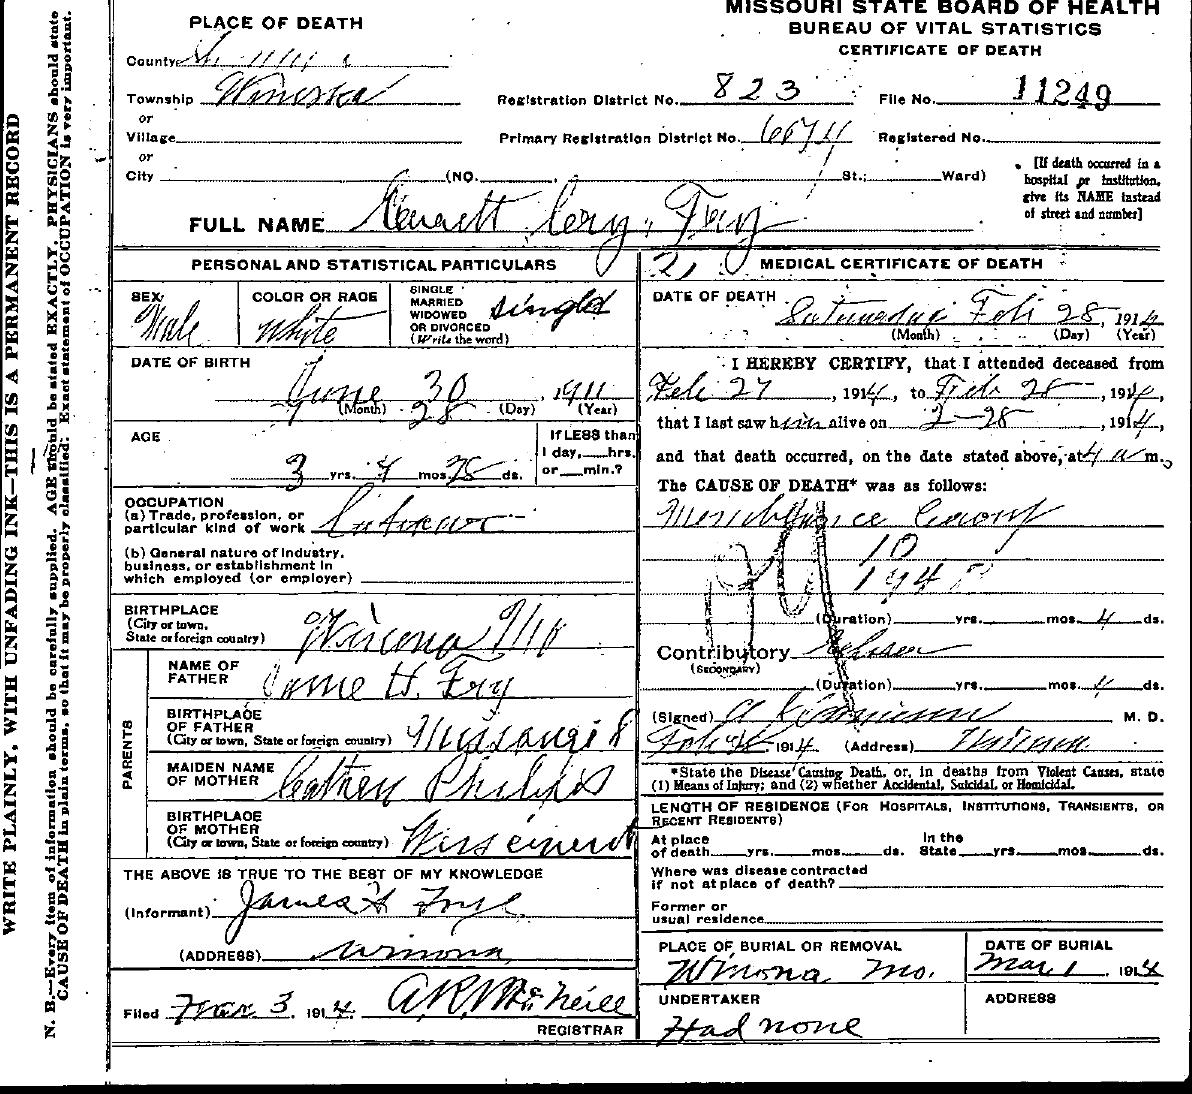 MISSOURI STATE BOARD OF HEALTH
BUREAU OF VITAL STATISTICS
CERTIFICATE OF DEATH
PLACE OF DEATH
County
Township Winona
or
Village
or
City (NO. St.; Ward)
Registration District No. 823
File No. 11249
Primary Registration District No. 6674
Registered No.
[If death occurred in a
hospital or institution,
give its NAME instead
of street and number]
FULL NAME Everett Fry
PERSONAL AND STATISTICAL PARTICULARS
SEX Male
COLOR OR RACE White
SINGLE
MARRIED
WIDOWED
OR DIVORCED
(Write the word) Single
DATE OF BIRTH
June 30, 1911
28
(Month) (Day) (Year)
AGE
3 yrs. mos. 28 ds.
If LESS than
1 day, hrs.
or min.?
OCCUPATION
(a) Trade, profession, or
particular kind of work
(b) General nature of industry,
business, or establishment in
which employed (or employer)
BIRTHPLACE
(City or town,
State or foreign country) Winona Mo
PARENTS
NAME OF
FATHER H. Fry
BIRTHPLACE
OF FATHER
(City or town, State or foreign country)
MAIDEN NAME
OF MOTHER Phillips
BIRTHPLACE
OF MOTHER
(City or town, State or foreign country)
THE ABOVE IS TRUE TO THE BEST OF MY KNOWLEDGE
(Informant) James H
(ADDRESS) Winona
Filed Mar 3 1914 A.R. McNeill
REGISTRAR
21
MEDICAL CERTIFICATE OF DEATH
DATE OF DEATH
Saturday Feb 28, 1914
(Month) (Day) (Year)
I HEREBY CERTIFY, that I attended deceased from
Feb 27, 1914, to Feb 28, 1914,
that I last saw him alive on 2-28, 1914,
and that death occurred, on the date stated above, at 4 a m.
The CAUSE OF DEATH* was as follows:
Croup
10
(Duration) yrs. mos. 4 ds.
Contributory
(SECONDARY)
(Duration) yrs. mos. 4 ds.
(Signed) M. D.
1914 (Address) Winona
*State the Disease Causing Death, or, in deaths from Violent Causes, state
(1) Means of Injury; and (2) whether Accidental, Suicidal, or Homicidal.
LENGTH OF RESIDENCE (FOR HOSPITALS, INSTITUTIONS, TRANSIENTS, OR
RECENT RESIDENTS)
At place
of death yrs. mos. ds.
In the
State yrs. mos. ds.
Where was disease contracted
if not at place of death?
Former or
usual residence
PLACE OF BURIAL OR REMOVAL
Winona Mo.
DATE OF BURIAL
Mar 1, 1914
UNDERTAKER
Had none
ADDRESS
WRITE PLAINLY, WITH UNFADING INK—THIS IS A PERMANENT RECORD
N. B.—Every item of information should be carefully supplied. AGE should be stated EXACTLY. PHYSICIANS should state
CAUSE OF DEATH in plain terms, so that it may be properly classified. Exact statement of OCCUPATION is very important.